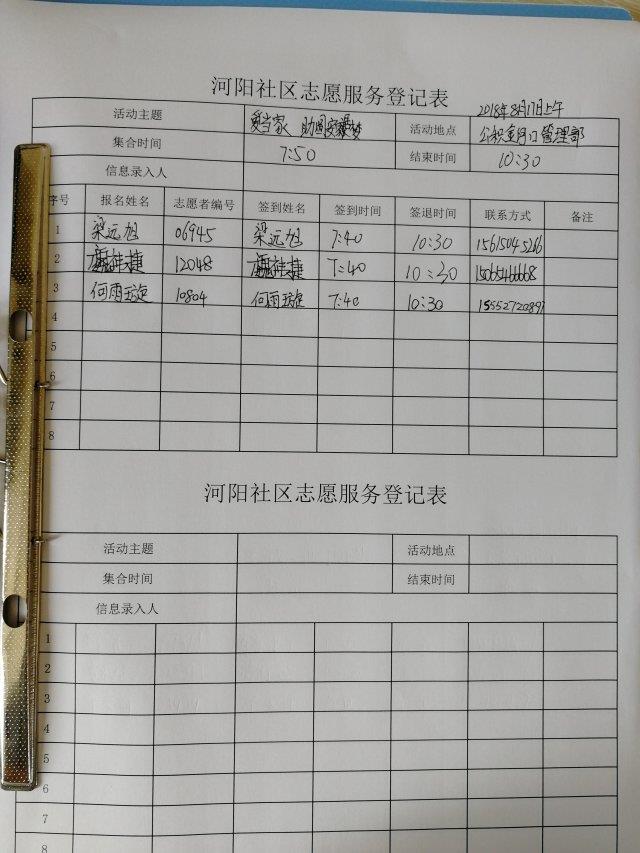 河阳社区志愿服务登记表 2018年8月17日上午
活动主题 爱当家 助圆安居梦 活动地点 公积金河口管理部
集合时间 7:50 结束时间 10:30
信息录入人
序号 报名姓名 志愿者编号 签到姓名 签到时间 签退时间 联系方式 备注
1 梁远旭 06945 梁远旭 7:40 10:30
2 12048 7:40 10:30
3 何雨璇 10804 何雨璇 7:40 10:30
4
5
6
7
8
河阳社区志愿服务登记表
活动主题 活动地点
集合时间 结束时间
信息录入人
1
2
3
4
5
6
7
8